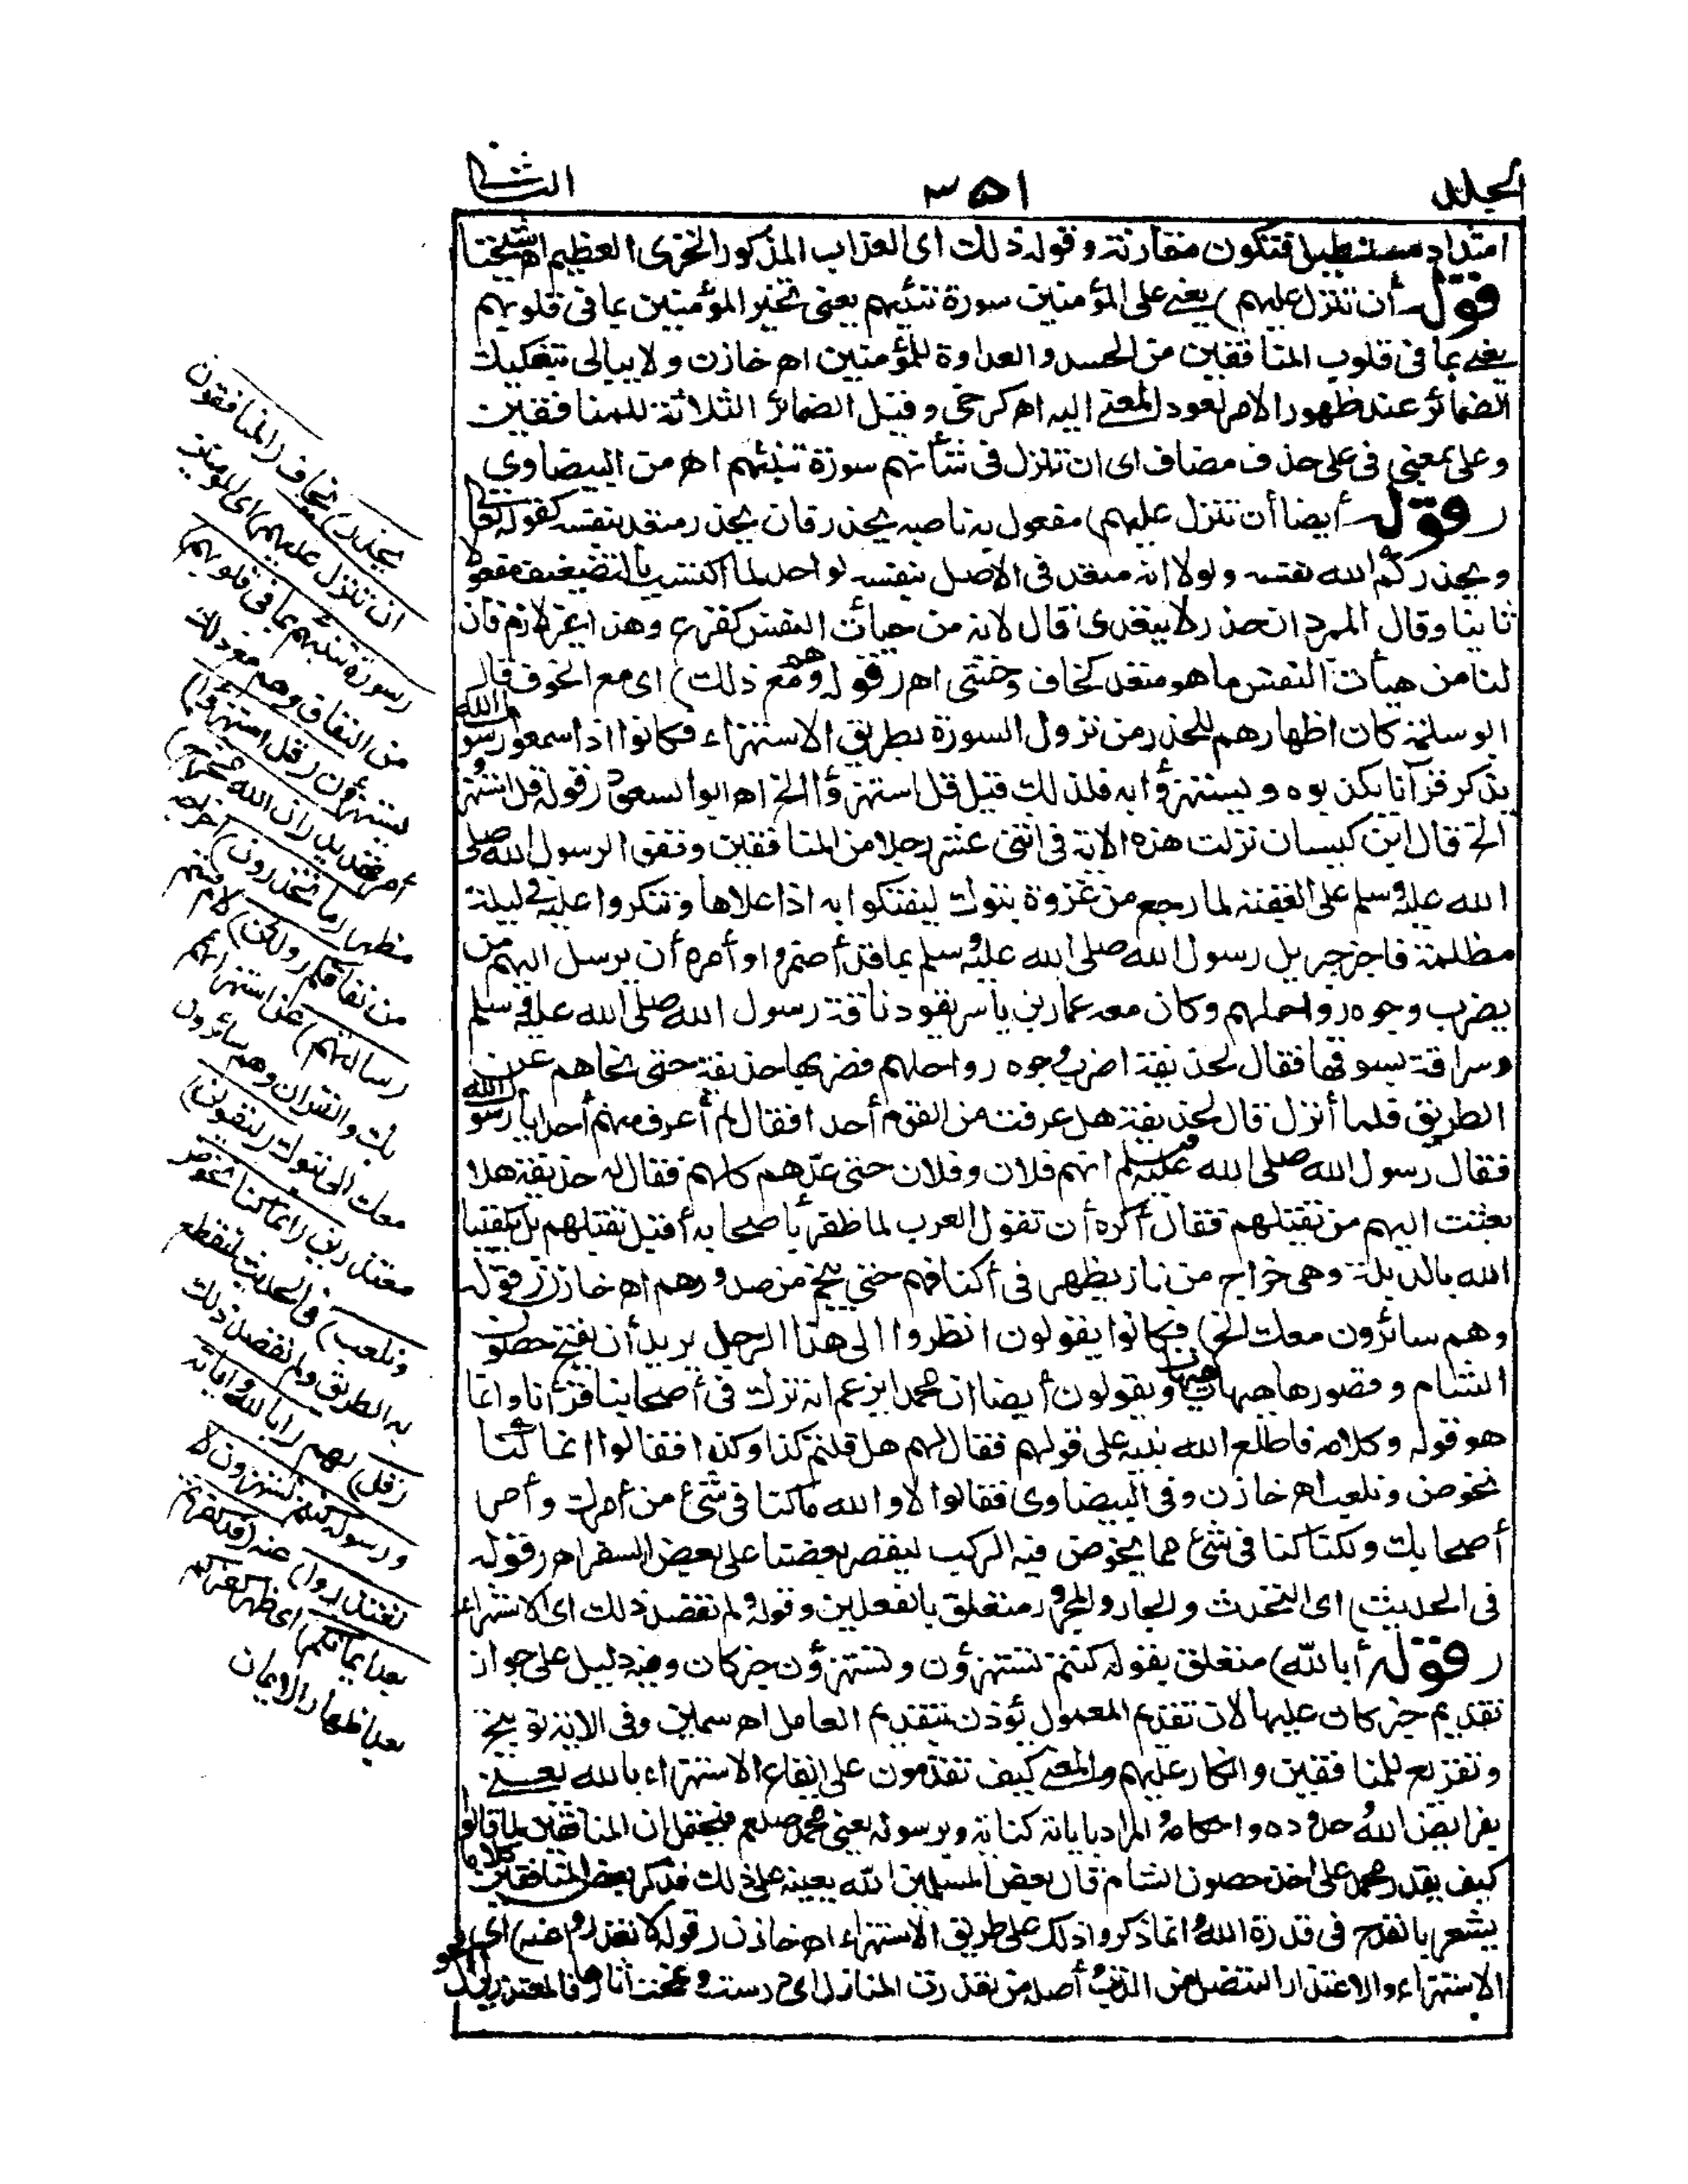 الجلد ٣٥١ الثانی
امتداد مستطيل فتكون متقاربة وقوله ذلك اى العذاب المذكور الخزى العظيم اه شيخنا
(قوله أن تنزل عليهم) يعنى على المؤمنين سورة تنبئهم يعنى تخبر المؤمنين بما فى قلوبهم
يعنى بما فى قلوب المنافقين من الحسد والعداوة للمؤمنين اه خازن ولا يبالى بتفكيك
الضمائر عند ظهور الامر لعود المعنى اليه اه كرخى وقيل الضمائر الثلاثة للمنافقين
وعلى بمعنى فى على حذف مضاف اى ان تنزل فى شأنهم سورة تنبئهم اه من البيضاوى
(قوله أيضا أن تنزل عليهم) مفعول به ناصبه يحذر فان يحذر متعد بنفسه كقوله تعالى
ويحذركم الله نفسه ولولا انه متعد فى الاصل بنفسه لواحد لما اكتسب بالتضعيف مفعولا
ثانيا وقال المبرد ان حذر لا يتعدى قال لانه من هيأت النفس كفزع وهذا غير لازم فان
لنا من هيأت النفس ما هو متعد كخاف وخشى اه (قوله وهم مع ذلك) اى مع الخوف قال
ابو سلمة كان اظهارهم للحذر من نزول السورة بطريق الاستهزاء فكانوا اذا سمعوا رسول الله
يذكر قرآنا يكذبوه ويستهزؤا به فلذلك قيل قل استهزؤا الخ اه ابو السعود (قوله قل استهزؤا
الخ قال ابن كيسان نزلت هذه الاية فى اثنى عشر رجلا من المنافقين وقفوا لرسول الله صلى
الله عليه وسلم على العقبة لما رجع من غزوة تبوك ليفتكوا به اذا علاها وتنكروا عليه فى ليلة
مظلمة فاخبر جبريل رسول الله صلى الله عليه وسلم بما قد أضمروا وأمره أن يرسل اليهم من
يضرب وجوه رواحلهم وكان معه عمار بن ياسر يقود ناقة رسول الله صلى الله عليه وسلم
وسراقة يسوقها فقال لحذيفة اضرب وجوه رواحلهم فضربها حذيفة حتى نحاهم عن
الطريق فلما أنزل قال لحذيفة هل عرفت من القوم أحدا فقال لم أعرف منهم أحدا يا رسول الله
فقال رسول الله صلى الله عليه وسلم انهم فلان وفلان حتى عدهم كلهم فقال له حذيفة هلا
بعثت اليهم من يقتلهم فقال أكره أن تقول العرب لما ظفر بأصحابه أقبل يقتلهم بل يكفينا
الله بالدبيلة وهى خراج من نار يظهر فى أكتافهم حتى ينجم من صدورهم اه خازن (قوله
وهم سائرون معك الخ) فكانوا يقولون انظروا الى هذا الرجل يريد أن يفتح حصون
الشام وقصورها هيهات هيهات ويقولون أيضا ان محمدا يزعم انه نزلت فى أصحابنا قرآنا وانما
هو قوله وكلامه فاطلع الله نبيه على قولهم فقال لهم هل قلتم كذا وكذا فقالوا انما كنا
نخوض ونلعب اه خازن وفى البيضاوى فقالوا لا والله ما كنا فى شئ من أمرك وأمر
أصحابك ولكنا كنا فى شئ مما يخوض فيه الركب ليقصر بعضنا على بعض السفر اه (قوله
فى الحديث) اى التحدث والجار والمجرور متعلق بالفعلين وقوله ولم نقصد ذلك اى الاستهزاء
(قوله أبالله) متعلق بقوله كنتم تستهزؤن وتستهزؤن خبر كان وفيه دليل على جواز
تقديم خبر كان عليها لان تقديم المعمول يؤذن بتقديم العامل اه سمين وفى الاية توبيخ
وتقريع للمنافقين وانكار عليهم والمعنى كيف تقدمون على ايقاع الاستهزاء بالله يعنى
بفرائض الله وحدوده واحكامه والمراد باياته كتابه وبرسوله يعنى محمد صلعم فيحتمل ان المنافقين لما قالوا
كيف يقدر محمد على اخذ حصون الشام قال بعض المسلمين الله يعينه على ذلك فذكر بعض المنافقين كلاما
يشعر بالقدح فى قدرة الله وانما ذكروا ذلك على طريق الاستهزاء اه خازن (قوله لا تعتذروا عنه) اى
الاستهزاء والاعتذار التنصل من الذنب وأصله من تعذرت المنازل اى درست وانمحت آثارها فالمعتذر
(يحذر) يخاف (المنافقون
ان تنزل عليهم) اى المؤمنين
(سورة تنبئهم بما فى قلوبهم)
من النفاق وهم مع ذلك
يستهزؤن (قل استهزؤا)
أمر تهديد (ان الله مخرج)
مظهر (ما تحذرون) اخراجه
من نفاقكم (ولئن) لام قسم
(سألتهم) عن استهزائهم
بك والقرآن وهم سائرون
معك الى تبوك (ليقولن)
معتذرين (انما كنا نخوض
ونلعب) فى الحديث لنقطع
به الطريق ولم نقصد ذلك
(قل) لهم (أبالله واياته
ورسوله كنتم تستهزؤن لا
تعتذروا) عنه (قد كفرتم
بعد ايمانكم) اى ظهر كفركم
بعد اظهار الايمان